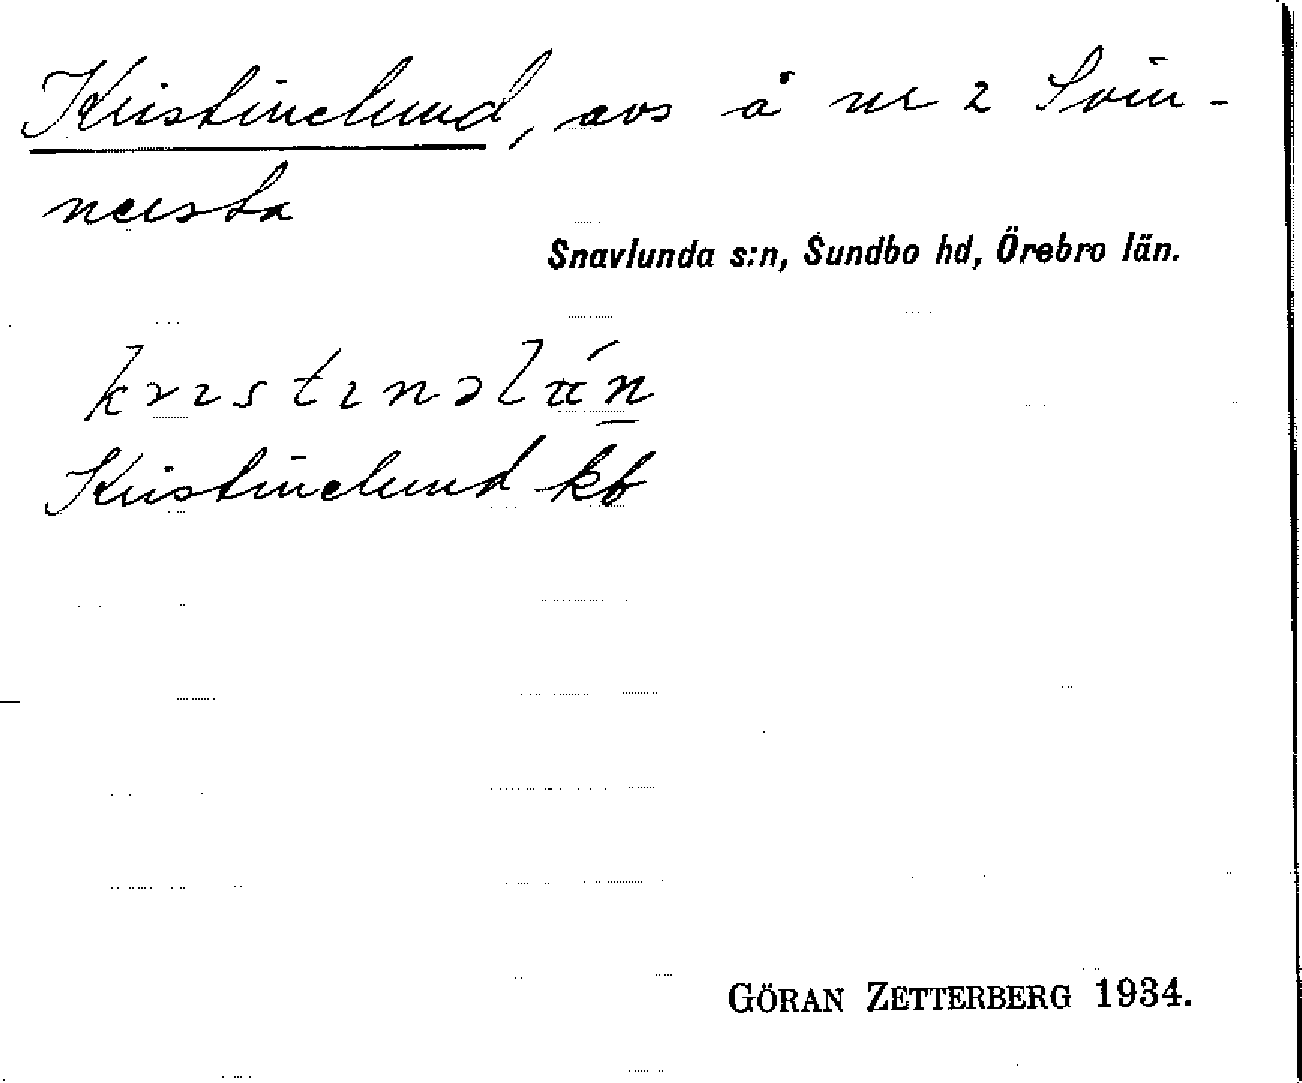 Kristinelund, avs å nr 2 Svin-
nersta
Snavlunda s:n, Sundbo hd, Örebro län.
Kristinelund kb
GÖRAN ZETTERBERG 1934.